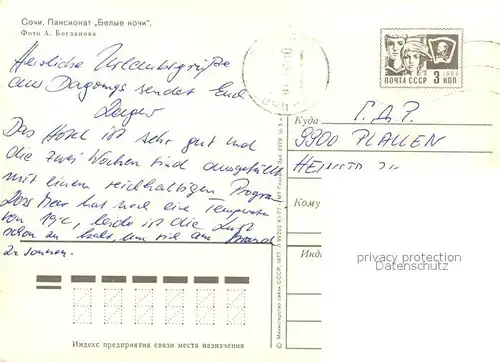 Сочи. Пансионат „Белые ночи".
Фото А. Богданова
Herzliche Urlaubsgrüße
aus Dagomys sendet Euch
Das Hotel ist sehr gut und
die zwei Wochen sind ausgefüllt
mit einem reichhaltigen Program
Das Meer hat noch eine Temperatur
von 19°C, leider ist die Luft
schon zu kalt, um sich am Strand
zu sonnen.
ПОЧТА СССР 3 КОП.
1966
Куда Г.Д.Р.
9900 PLAUEN
Кому
Инд
privacy protection
Datenschutz
© Министерство связи СССР, 1977
Индекс предприятия связи места назначения